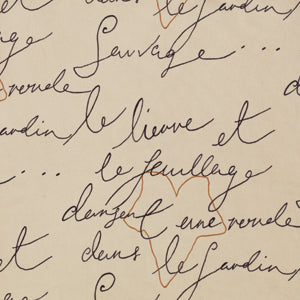 et dans le Jardin,
age Sauvage ...
ronde
Jardin, le lievre et d
e ... le feuillage
dansent une ronde
et dans le Jardin,